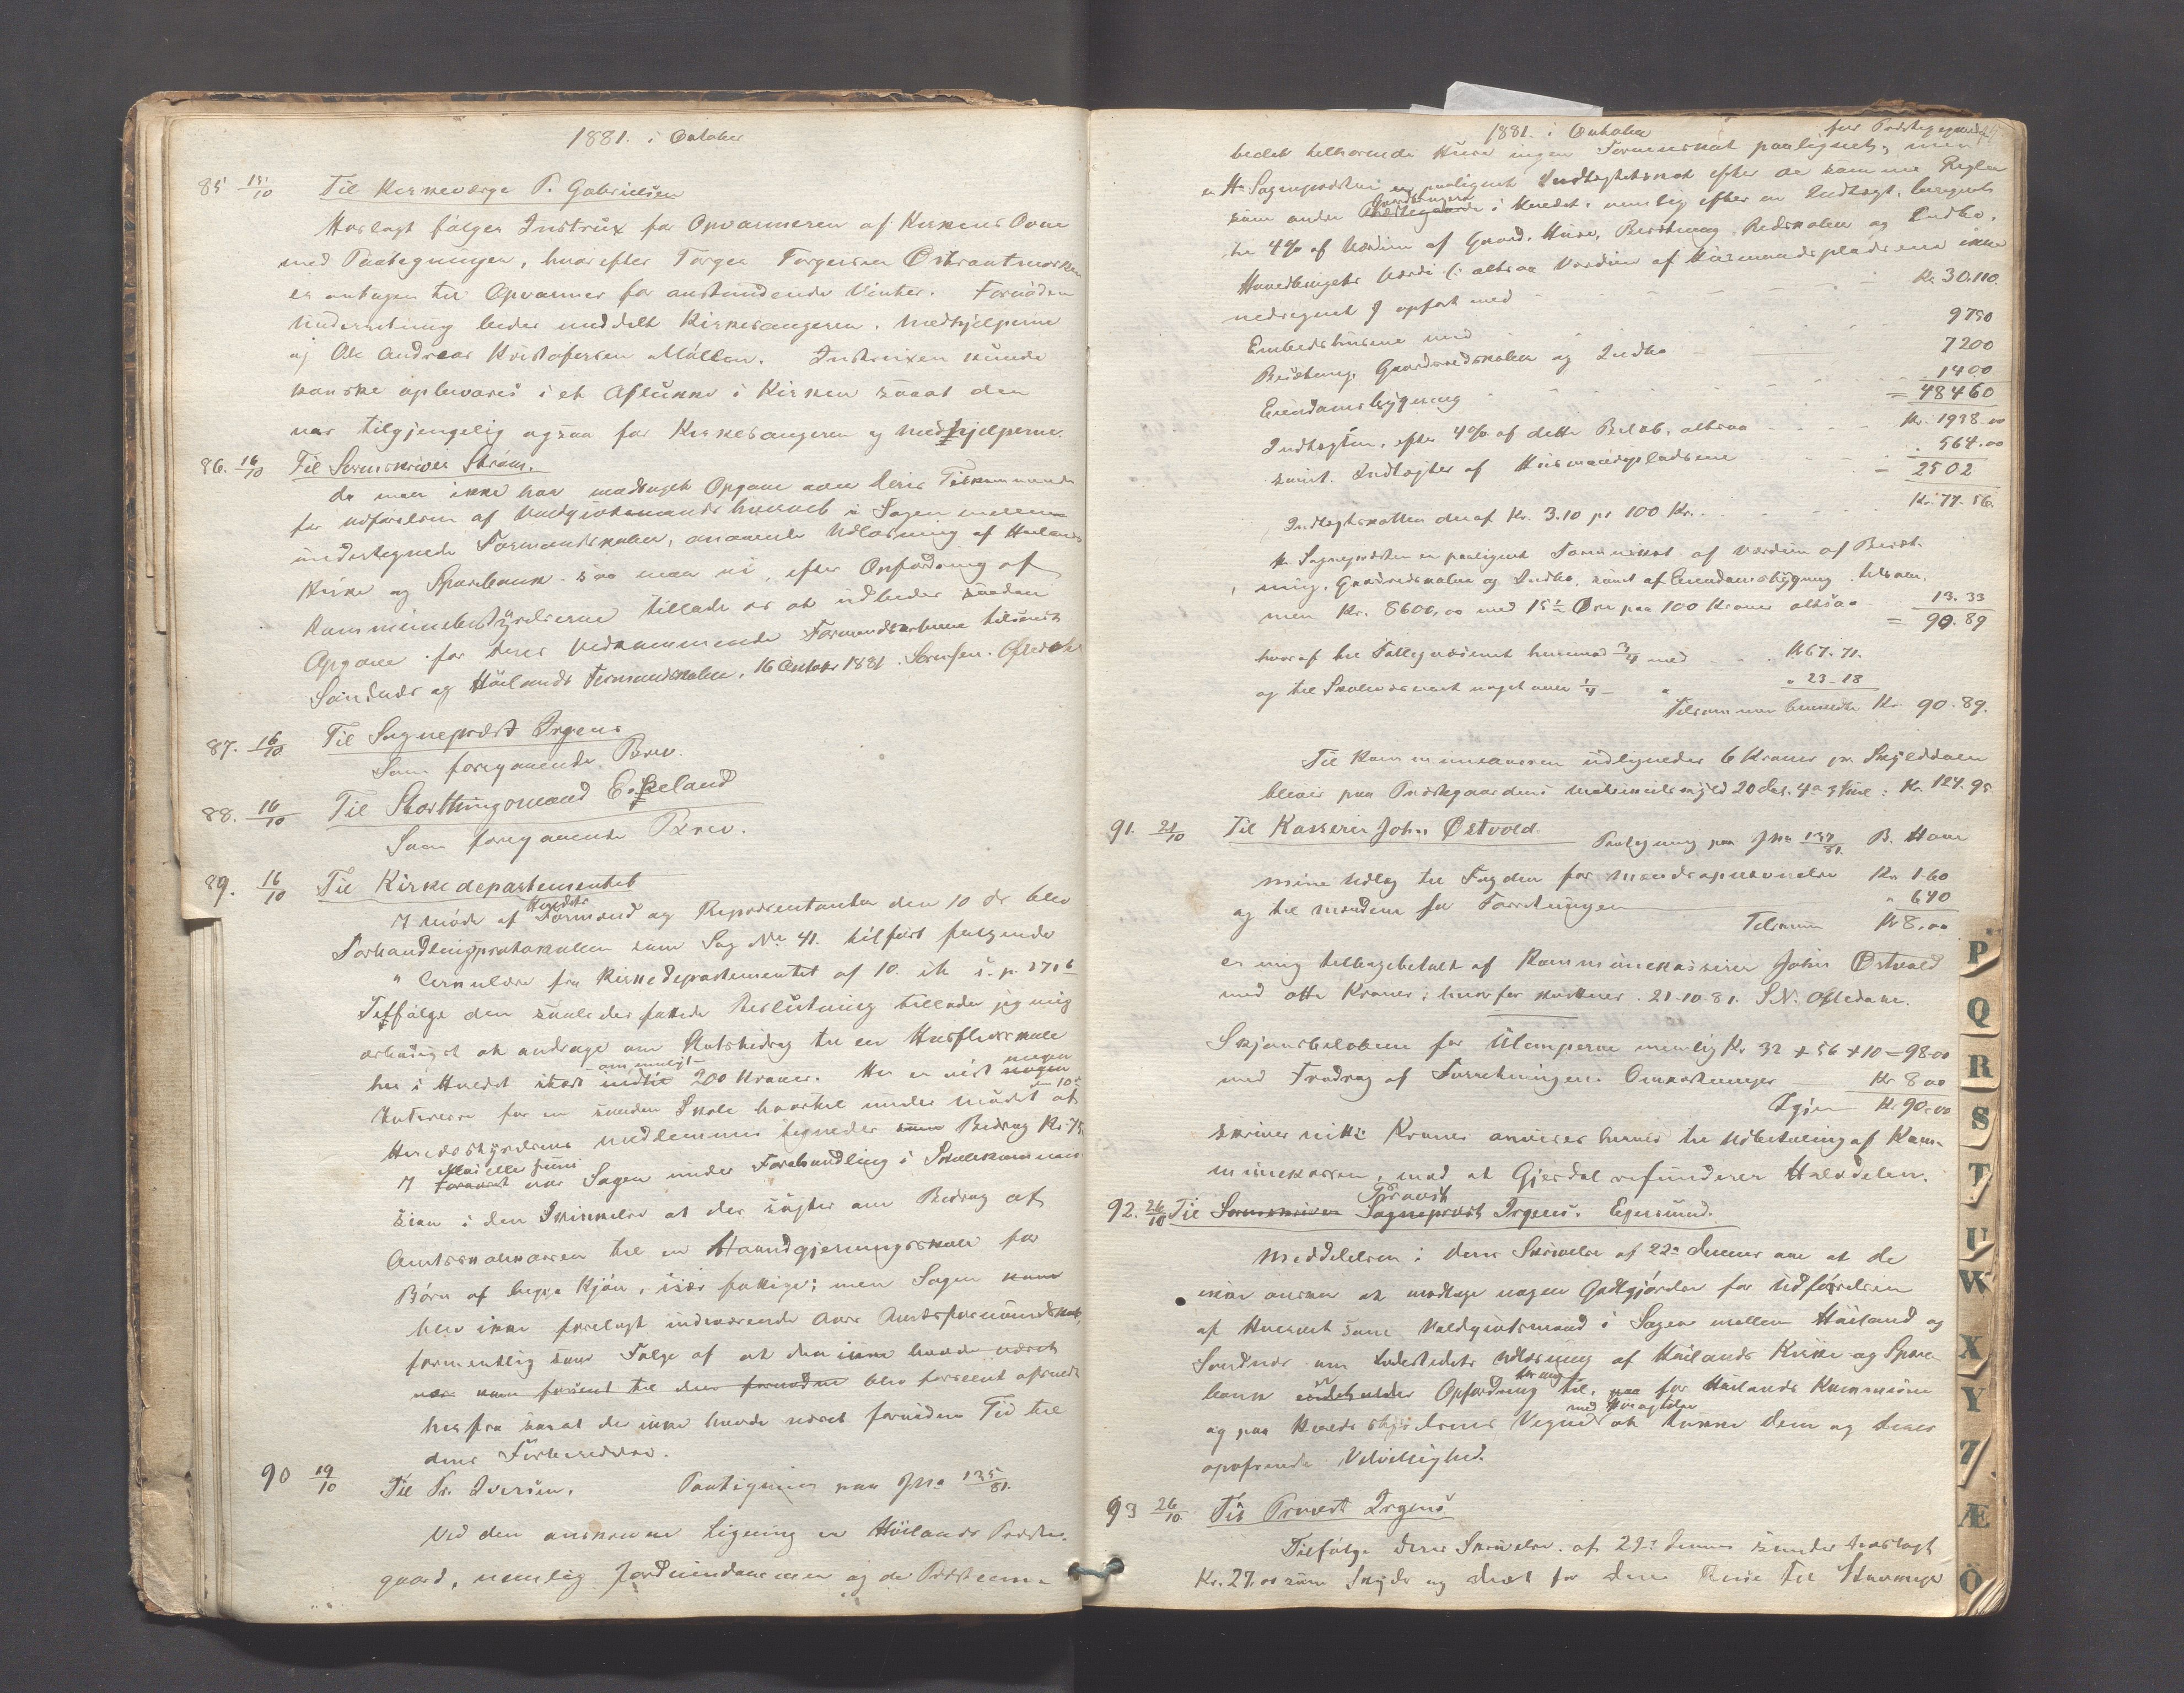 1881. i Oktober
85 15/10 Til Kirkeværge P. Gabrielsen
Hoslagt følger Instrux for Opvarmeren af Kirkens Ovne
med Paategninger, hvorefter Torger Torgersen
er antagen til Opvarmer for anstundende Vinter. Fornöden
Underretning bedes meddelt Kirkesangeren, Medhjelperne
og Ole Andreas Kristofersen Møllen. Instruxen kunde
kanske opbevares i et Aflukke i Kirken saaat den
var tilgjengelig ogsaa for Kirkesangeren og Medhjelperne.
86. 16/10 Til Sorenskriver Strøm.
da man ikke har modtaget Opgave over Deres Tilkommende
for Udførelsen af Voldgiftsmandshvervet i Sagen mellem
undertegnede Formandskaber, angaaende Udløsning af Høilands
Kirke og Sparebank saa maa vi, efter Opfordring af
Kommunebestyrelserne tillade os at udbede saadan
Opgave for Deres Vedkommende Formandskaberne tilsendt
Sandnæs og Høilands Formandskaber, 16 Oktober 1881. Sørensen.
87. 16/10 Til Sogneprest Irgens
Som foregaaende Brev.
88. 16/10 Til Storthingsmand Eskeland
Som foregaaende Brev.
89. 16/10 Til Kirkedepartementet
I Møde af Herdets Formænd og Repræsentanter den 10 ds. blev
Forhandlingsprotokollen som Sag No 41. tilført følgende
" Cirkulære fra Kirkedepartementet af 10.
Tilfølge den saaledes fattede Beslutning tillader jeg mig
at andrage om Statsbidrag til en Husflidsskole
her i Heredet om muligt 200 Kroner. Her er vist megen
Interesse for en saadan Skole hvortil under Mødet 10de
Heredsstyrelsens Medlemmer tegnedes Bidrag Kr. 75.
I Mai eller Juni var Sagen under Forhandling i Skolekommis-
sion i den Skikkelse at der søgtes om Bidrag af
Amtsskolekassen til en Haandgjerningsskole for
Børn af begge Kjøn, især fattige; men Sagen
blev ikke forelagt indeværende Aars Amtsformandskab,
formentlig som Følge af at den ikke havde været
blev forseent afsendt
herfra saaat der ikke havde været fornøden Tid til
dens Forberedelse.
90 19/10 Til Pr. Iversen. Paategning paa JNo 135/81.
Ved den Ligning er Høilands Præste-
gaard, nemlig Jordeiendommen og de Præsteem-
1881. i Oktober
bedet tilhørende Huse ingen Formueskat paalignet, men for Præstegaarden
er Hr Sognepresten paalignet Indtægtsskat efter de samme Regler
som andre Gaardbrugere i Heredet, nemlig efter en Indtægt, beregnet
til 4% af Værdien af Gaard, Huse, Besætning Redskaber og Indbo.
Hovedbrugets Værdi (: altsaa Værdien af Husmandspladsene ikke
medregnet) opført med - - - Kr 30.110.
Embedshusene med - - - 9750
Besætning, Gaardsredskaber og Indbo - - - 7200
Eiendomsbygning - - - 1400
= 48460
Indtægten, efter 4% af dette Beløb, altsaa - - - Kr. 1938.00
samt. Indtægter af Husmandspladsene - - - 564.00
= 2502
Indtægtsskatten deraf Kr. 3.10 pr 100 Kr. - - - Kr. 77.56.
Hr Sognepresten er paalignet Formueskat af Værdien af Besæt-
ning, Gaardsredskaber og Indbo, samt af Eiendomsbygning, tilsam-
men Kr. 8600,00 med 15½ Øre paa 100 Kroner altsaa 13.33
= 90.89
hvoraf til Fattigvæsenet henimod 3/4 med Kr 67.71.
og til Skolevæsenet noget over 1/4 - " " 23-18
Tilsammen benævnte Kr. 90.89.
Til Kommunekassen udlignedes 6 Kroner pr Skylddaler
bliver paa Præstegaardens Matrikulskyld 20 dal. 4 ort 3 skill: Kr. 124.95
91. 21/10 Til Kasserer John Østvold. Paategning paa JNo 137/81. B. Have
mine Udlæg til Fogden for Mændsopnævnelse Kr. 1.60
og til Mændene for Forretningen " 6.40
Tilsammen Kr 8.00
er mig tilbagebetalt af Kommunekasserer John Østvold
med otte Kroner; hvorfor kvitteres. 21-10-81. S.N.
Skjønsbeløbene for Ulemperne nemlig Kr 32 + 56 + 10 = 98.00
med Fradrag af Forretningens Omkostninger Kr. 8 00
Igjen Kr. 90.00
skriver nitti Kroner anvises herved til Udbetaling af Kom-
munekassen, mod at Gjesdal refunderer Halvdelen.
92. 26/10 Til Sorenskriver Sogneprest Provst Irgens. Egersund.
Meddelelsen i Deres Skrivelse af 22de dennes om at de
ikke ønsker at modtage nogen Godtgjørelse for Udførelsen
af Hvervet som Voldgiftsmand i Sagen mellem Høiland og
Sandnæs om Ladestedets Udløsning af Høilands Kirke og Spare-
bank er Opfordring for mig til, paa for Høilands Kommune
og paa Heredsstyrelsens Vegne med Høiagtelse at takke Dem og Deres
opofrende Velvillighed.
93 26/10 Til Provst Irgens
Tilfølge Deres Skrivelse af 22de dennes sendes hoslagt
Kr. 27.00 som Skyds og Diæt for Deres Reise til
P
Q
R
S
T
U
W
X
Y
Z
Æ
Ö